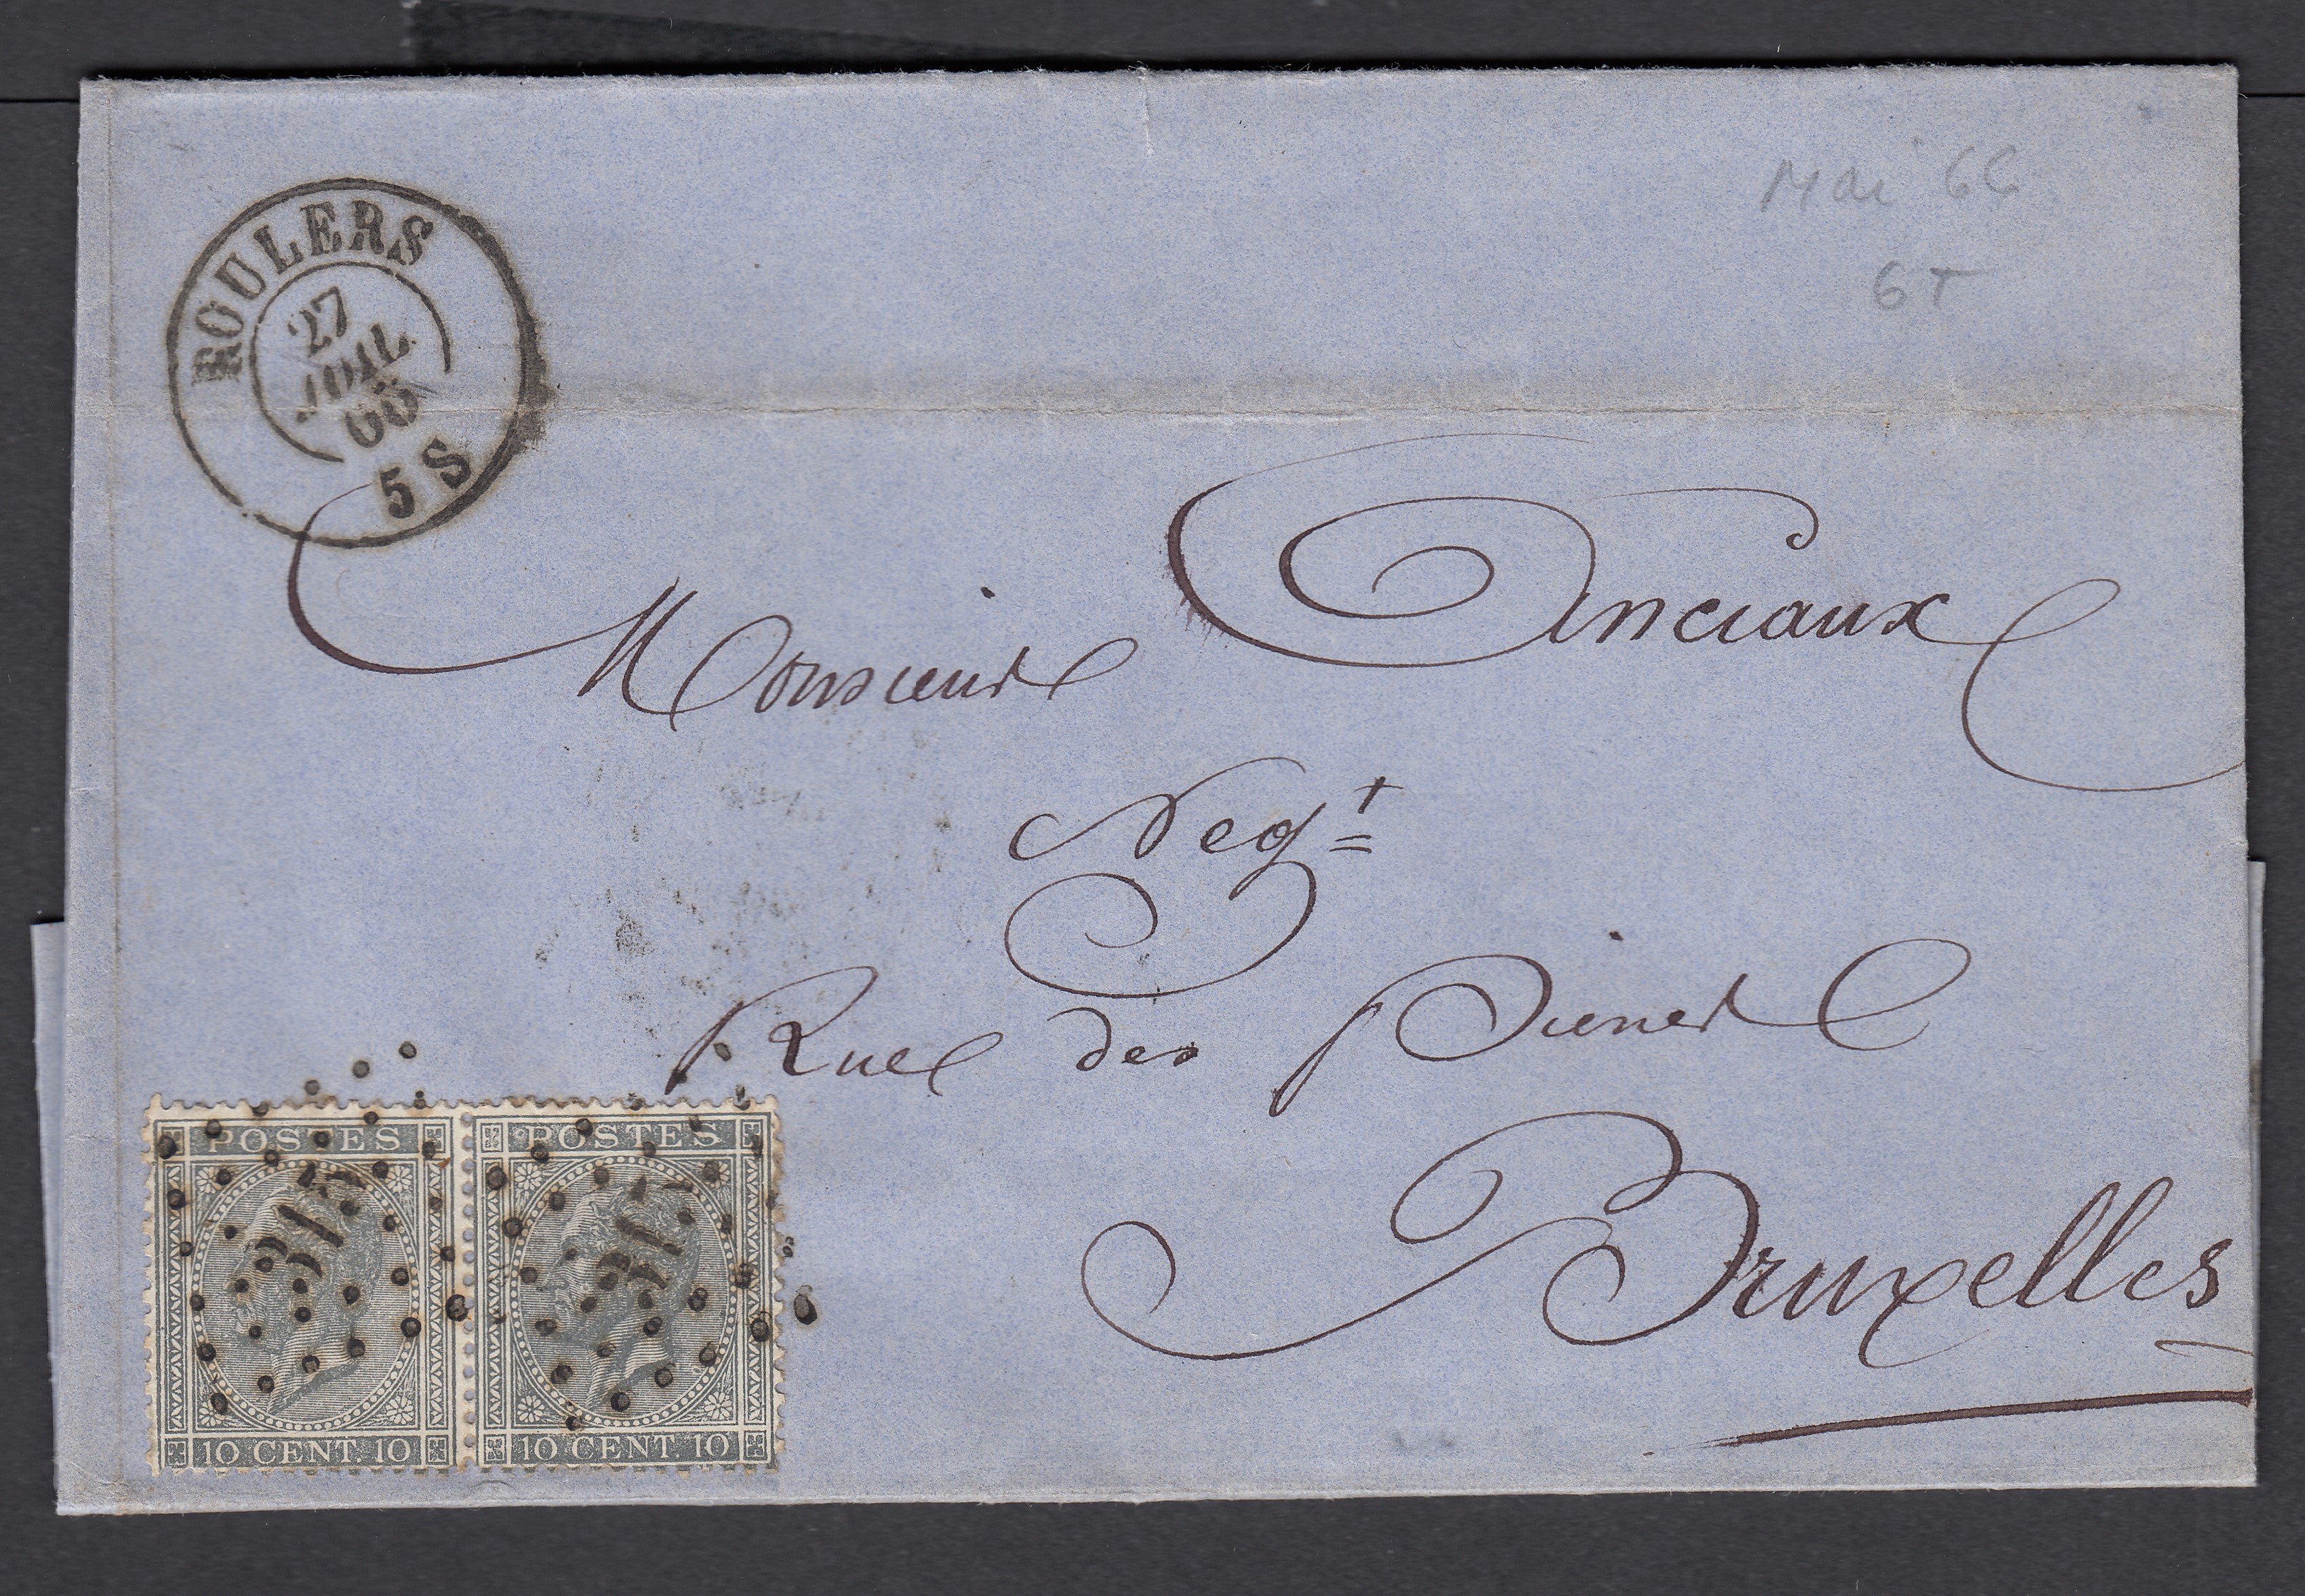 ROULERS
27
JUIL
66
5 S
Mai 66
6T
Monsieur Anciaux
Negt
Rue des Pierres
Bruxelles
POSTES POSTES
10 CENT. 10 10 CENT. 10